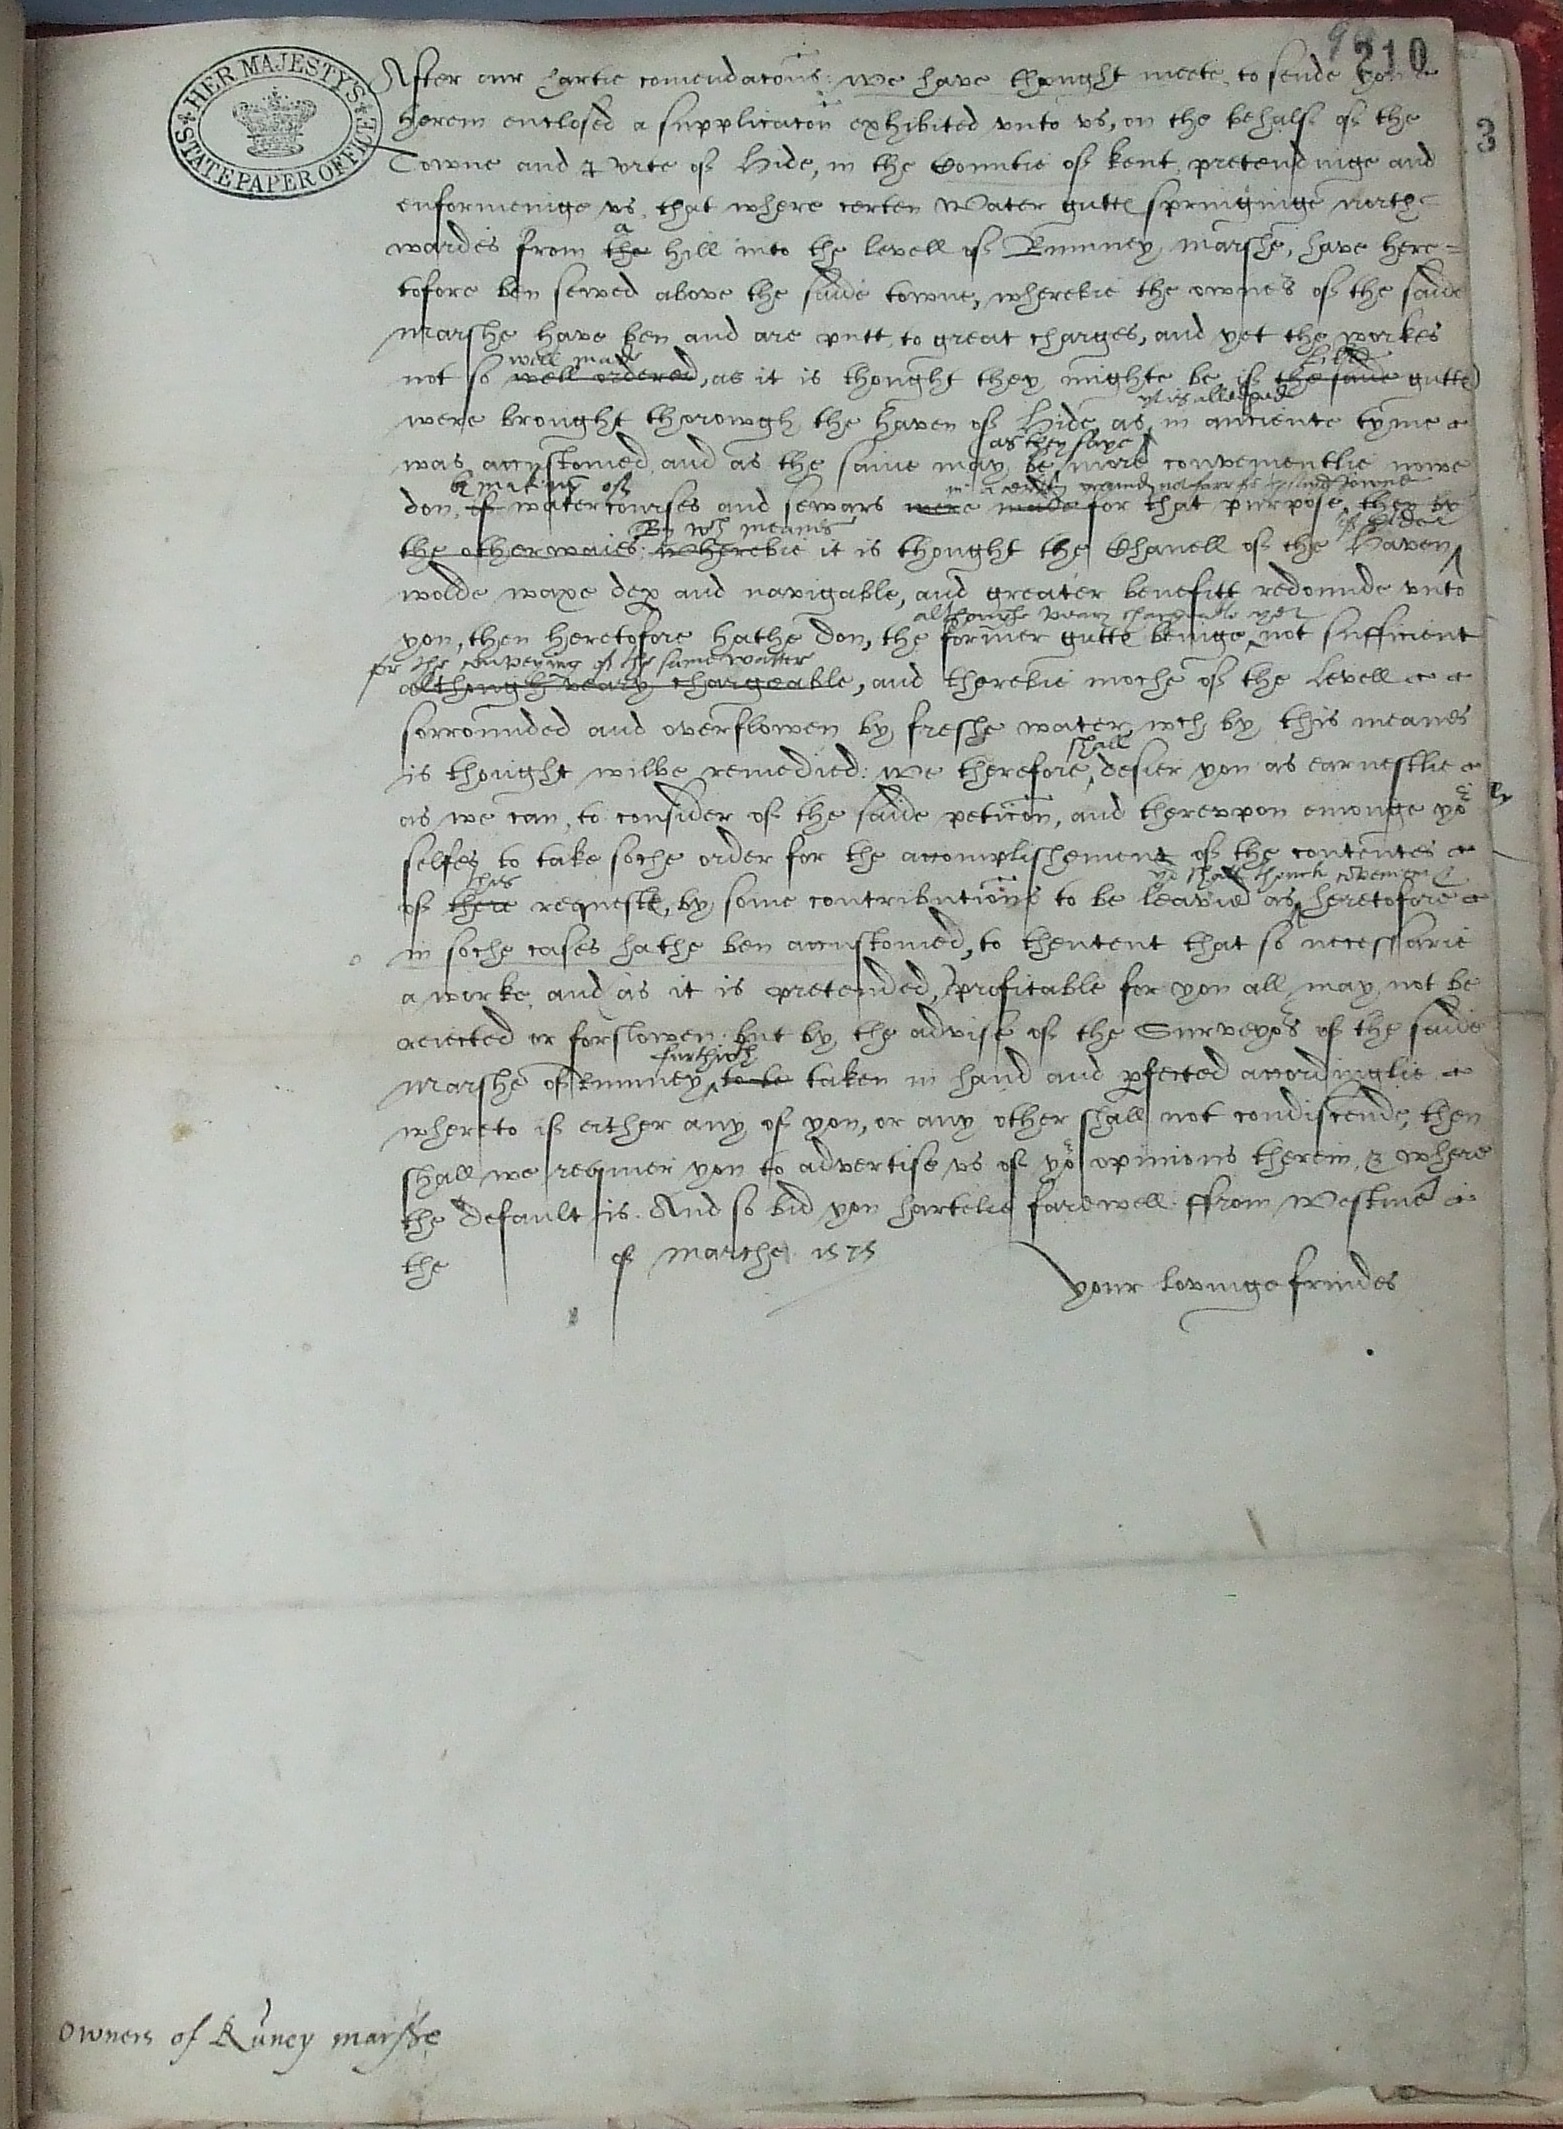 210
3
HER MAJESTYS
STATE PAPER OFFICE
After our hartie comendacons: we have thought meete to sende you
herein enclosed a supplicacon exhibited vnto vs, on the behalf of the
Towne and Porte of Hide, in the Countie of Kent, pretendinge and
enforminge vs, that where certen water gutte springinge north=
wardes from the a hill into the levell of Rumney marshe, have here=
tofore ben sewed above the saide towne, wherebie the owners of the saide
marshe have ben and are putt to great charges, and yet the workes
well made
not so well ordered, as it is thought they mighte be, if the saide gutte
yt is alledged
were brought thorowgh the haven of Hide as in anciente tyme
as they saye
was accustomed, and as the same may be more convenientlie nowe
by making of
don, of watercourses and sewars were made for that purpose, then by
By wch meanes of Hide
the otherwaies: wherebie it is thought the Chanell of the Haven
wolde waxe dep and navigable, and greater benefitt redounde vnto
althoughe veary chargeable yet
you, then heretofore hathe don, the former gutte beinge not sufficient
for the conveying of the same watter
although veary chargeable, and therebie moche of the levell
sorrounded and overflowen by freshe water, wch by this meanes
shall
is thought wilbe remedied: we therefore desier you as earnestlie
as we can, to consider of the saide peticon, and therevpon emonge yor
selfes to take soche order for the accomplishement of the contentes
this yo shall thinck convenient
of there requeste, by some contributions to be leavied as heretofore
in soche cases hathe ben accustomed, to thentent that so necessarie
a worke, and as it is pretended, profitable for you all may not be
reiected or forslowen: but by the advise of the Surveyors of the saide
furthwth
marshe of Rumney to be taken in hand and perfected accordinglie
whereto if either any of you, or any other shall not condiscende, then
shall we requier you to advertise vs of yor opinions therein, & where
the default is. And so bid you hartelie farewell. ffrom Westmr
the of Marche 1575
your lovinge frindes
Owners of Rumney marshe